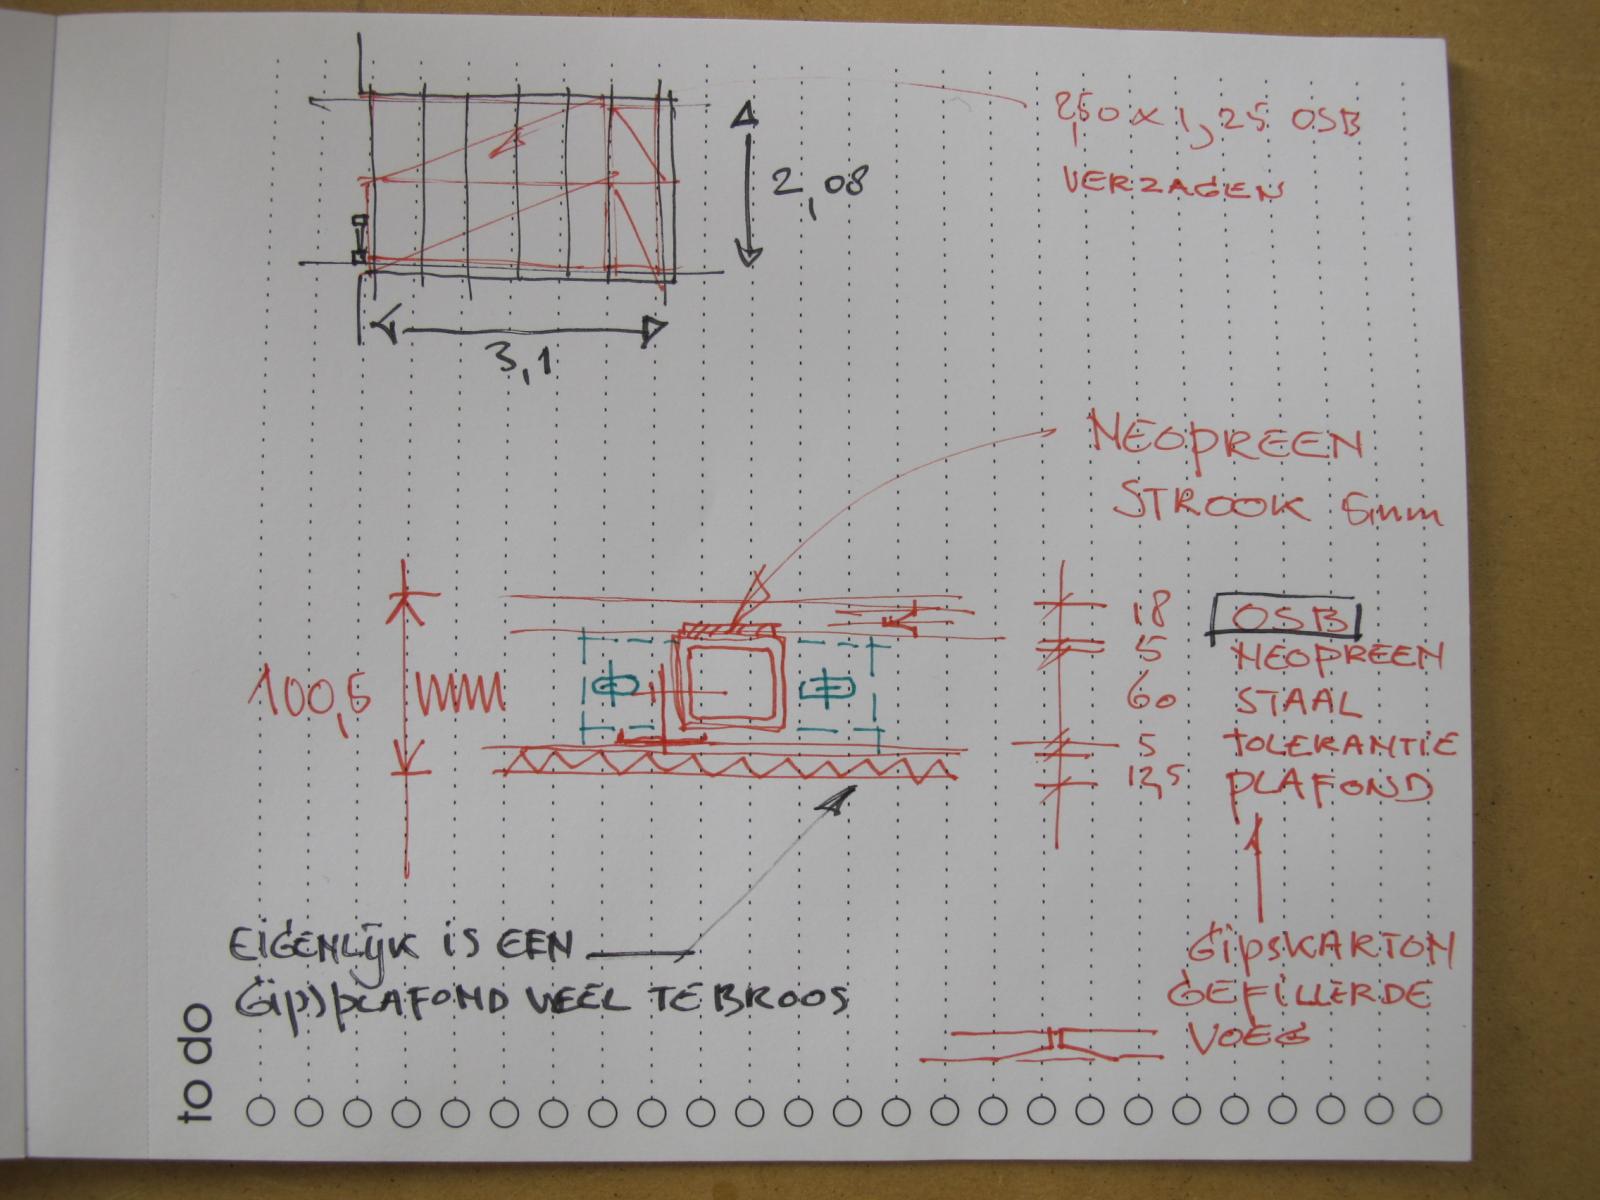 2,50 x 1,25 OSB
VERZAGEN
2,08
3,1
NEOPREEN
STROOK 5mm
18 OSB
5 NEOPREEN
100,5 mm
60 STAAL
5 TOLERANTIE
12,5 PLAFOND
EIGENLIJK IS EEN
GIPSPLAFOND VEEL TE BROOS
GIPSKARTON
GEFILLERDE
VOEG
to do